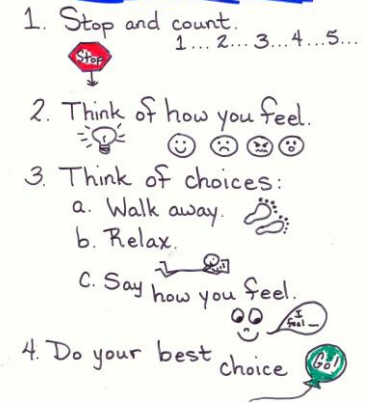 1. Stop and count.
1... 2... 3... 4... 5...
Stop
2. Think of how you feel.
3. Think of choices:
a. Walk away.
b. Relax.
c. Say how you feel.
I feel __
4. Do your best choice
Go!